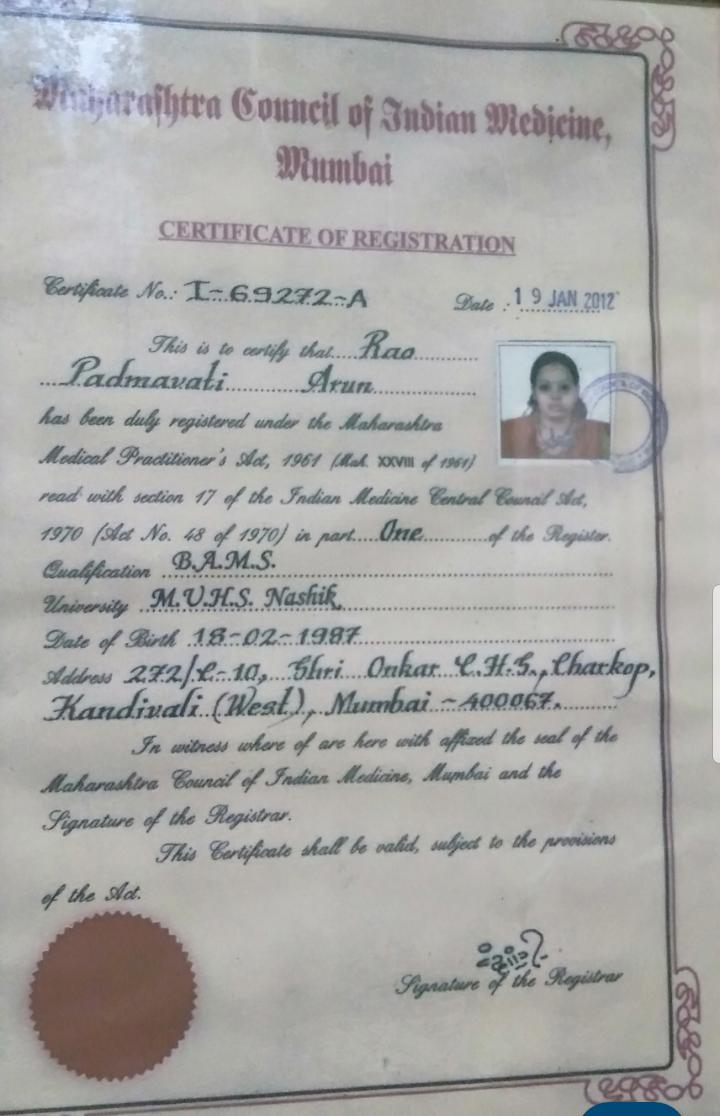 Maharashtra Council of Indian Medicine,
Mumbai
CERTIFICATE OF REGISTRATION
Certificate No.: I-69272-A Date : 19 JAN 2012
This is to certify that.....Rao
Padmavati Arun
has been duly registered under the Maharashtra
Medical Practitioner's Act, 1961 (Mah. XXVIII of 1961)
read with section 17 of the Indian Medicine Central Council Act,
1970 (Act No. 48 of 1970) in part.....One..........of the Register.
Qualification B.A.M.S.
University M.U.H.S. Nashik
Date of Birth 18-02-1987
Address 272/C-10, Shri Onkar C.H.S., Charkop,
Kandivali (West), Mumbai - 400067.
In witness where of are here with affixed the seal of the
Maharashtra Council of Indian Medicine, Mumbai and the
Signature of the Registrar.
This Certificate shall be valid, subject to the provisions
of the Act.
Signature of the Registrar